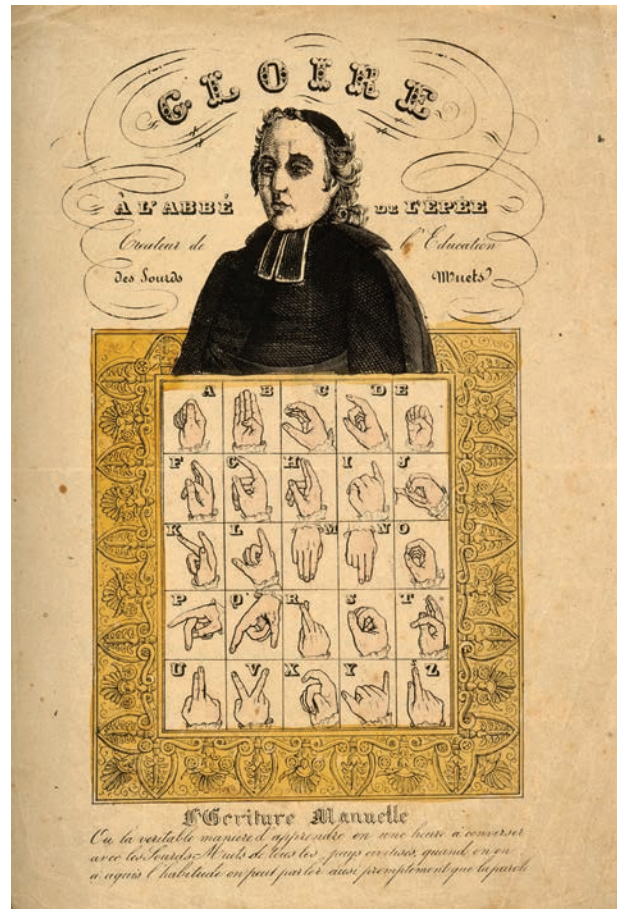 GLOIRE
À L'ABBÉ DE L'EPÉE
Createur de l'Education
des Sourds Muets
A B C D E
F G H I J
K L M N O
P Q R S T
U V X Y Z
l'Ecriture Manuelle
Ou la veritable maniere d'apprendre en une heure à converser
avec les Sourds Muets de tous les pays civilisés, quand on en
a aquis l'habitude on peut parler ausi promptement que la parole